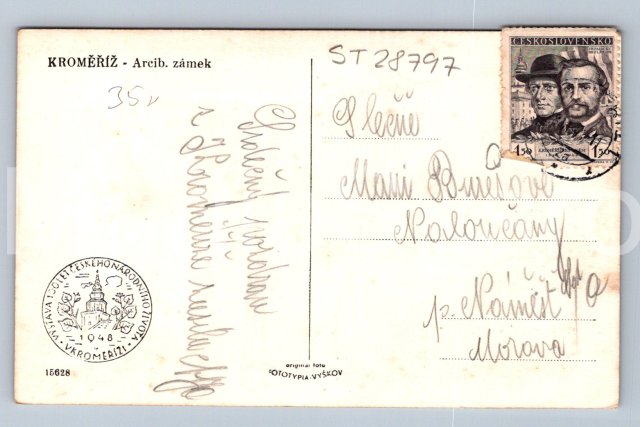 KROMĚŘÍŽ - Arcib. zámek
ST 28797
35,-
ČESKOSLOVENSKO
1.50 KROMĚŘÍŽ 1.50
Slečně
Mani Burešové
Naloučany
p. Náměšť n/O
Morava
Srdečný pozdrav
z Kroměříže
VÝSTAVA 100 LET ČESKÉHO NÁRODNÍHO ŽIVOTA
V KROMĚŘÍŽI
1948
15628
original foto
FOTOTYPIA-VYŠKOV